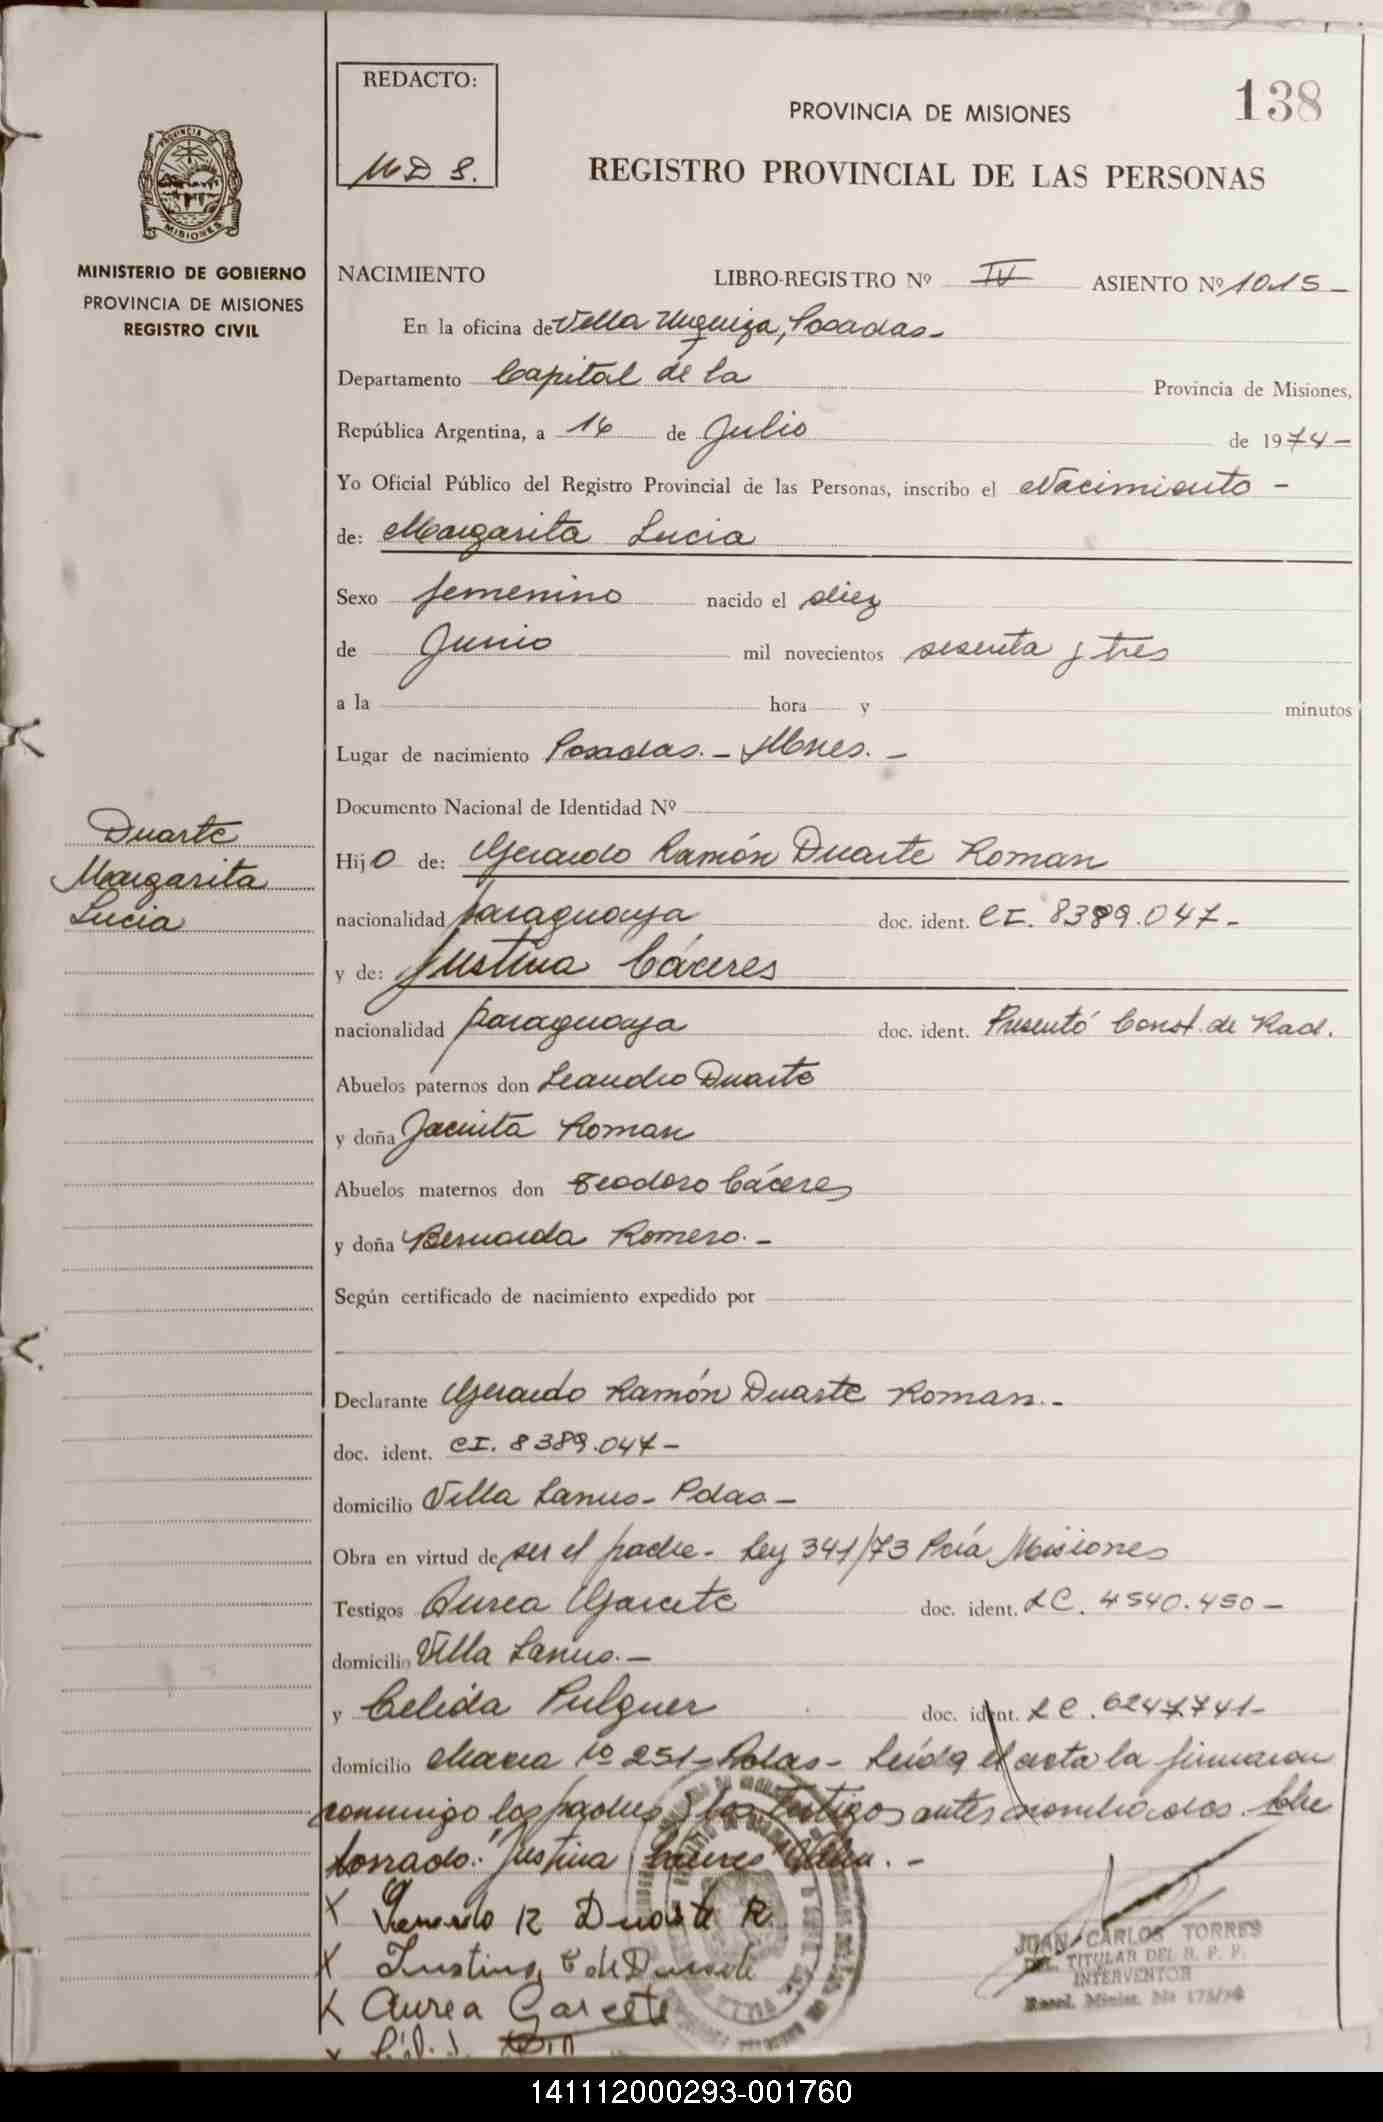 REDACTO:
138
PROVINCIA DE MISIONES
REGISTRO PROVINCIAL DE LAS PERSONAS
PROVINCIA DE
MISIONES
MINISTERIO DE GOBIERNO
PROVINCIA DE MISIONES
REGISTRO CIVIL
NACIMIENTO LIBRO-REGISTRO Nº IV ASIENTO Nº 1015 -
En la oficina de Villa Urquiza, Posadas -
Departamento Capital de la Provincia de Misiones,
República Argentina, a 16 de Julio de 1974 -
Yo Oficial Público del Registro Provincial de las Personas, inscribo el Nacimiento -
de: Margarita Lucia
Sexo femenino nacido el diez
de Junio mil novecientos sesenta y tres
a la hora y minutos
Lugar de nacimiento Posadas. - Mnes. -
Documento Nacional de Identidad Nº
Duarte
Margarita
Lucia
Hijo de: Gerardo Ramón Duarte Roman
nacionalidad paraguaya doc. ident. CI. 8389.047 -
y de: Justina Cáceres
nacionalidad paraguaya doc. ident. Presentó Const. de Rad.
Abuelos paternos don Leandro Duarte
y doña Jacinta Roman
Abuelos maternos don Teodoro Cáceres
y doña Bernarda Romero. -
Según certificado de nacimiento expedido por
Declarante Gerardo Ramón Duarte Roman. -
doc. ident. CI. 8389.047 -
domicilio Villa Lanus - Pdas -
Obra en virtud de ser el padre - Ley 341/73 Pcía Misiones
Testigos Aurea Garcete doc. ident. LC. 4540.450 -
domicilio Villa Lanus. -
y Celida Pulguer doc. ident. LC. 6247.741 -
domicilio Chacra 251 - Pdas - Leída el acta la firmaron
conmigo los padres y los testigos antes nombrados. Sobre
borrado: "Justina Cáceres" Vale. -
X Gerardo R Duarte R
X Justina C de Duarte
X Aurea Garcete
JUAN CARLOS TORRES
DEL. TITULAR DEL R. P. P.
INTERVENTOR
Resol. Minist. No 175/74
141112000293-001760